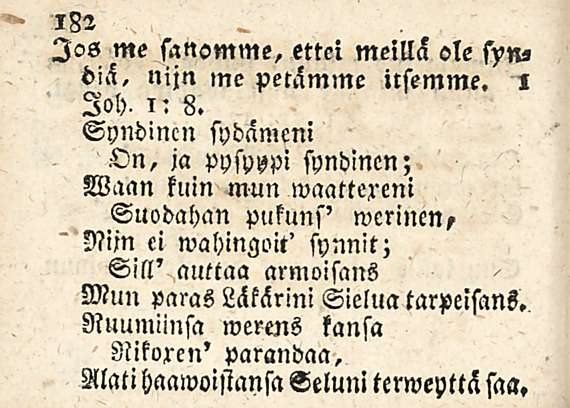 182
Jos me sanomme, ettei meillä ole syn⸗
diä, nijn me petämme itsemme. 1
Joh. 1: 8.
Syndinen sydämeni
On, ja pysyypi syndinen;
Waan kuin mun waattexeni
Suodahan pukuns' werinen,
Nijn ei wahingoit' synnit;
Sill' auttaa armoisans
Mun paras Läkärini Sielua tarpeisans.
Ruumiinsa werens kansa
Rikoxen' parandaa,
Alati haawoistansa Seluni terweyttä saa.